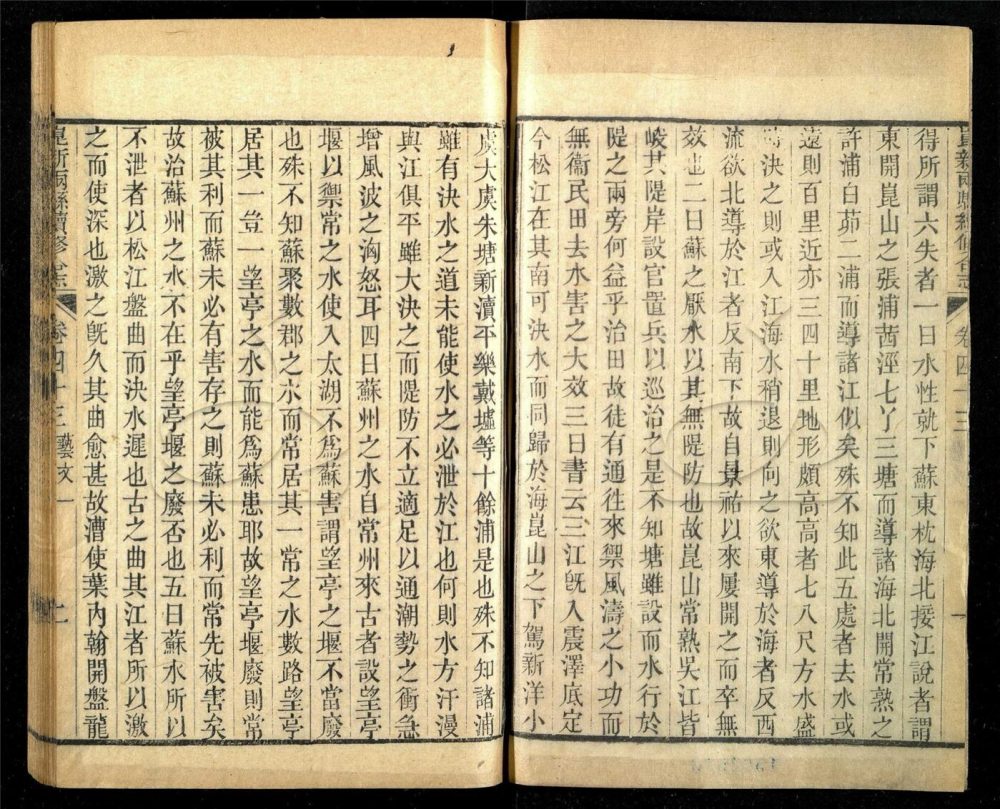 得所謂六失者一曰水性就下蘇東枕海北接江說者謂
東開崑山之張浦茜涇七丫三塘而導諸海北開常熟之
許浦白茆二浦而導諸江似矣殊不知此五處者去水或
遠則百里近亦三四十里地形頗高高者七八尺方水盛
時決之則或入江海水稍退則向之欲東導於海者反西
流欲北導於江者反南下故自景祐以來屢開之而卒無
效也二曰蘇之厭水以其無隄防也故崑山常熟吳江皆
峻其隄岸設官置兵以巡治之是不知塘雖設而水行於
隄之兩旁何益乎治田故徒有通往來禦風濤之小功而
無衞民田去水害之大效三曰書云三江旣入震澤底定
今松江在其南可決水而同歸於海崑山之下駕新洋小
虞大虞朱塘新瀆平樂戴墟等十餘浦是也殊不知諸浦
雖有決水之道未能使水之必泄於江也何則水方汗漫
與江俱平雖大決之而隄防不立適足以通潮勢之衝急
增風波之洶怒耳四曰蘇州之水自常州來古者設望亭
堰以禦常之水使入太湖不爲蘇害謂望亭之堰不當廢
也殊不知蘇聚數郡之水而常居其一常之水數路望亭
居其一豈一望亭之水而能爲蘇患耶故望亭堰廢則常
被其利而蘇未必有害存之則蘇未必利而常先被害矣
故治蘇州之水不在乎望亭堰之廢否也五曰蘇水所以
不泄者以松江盤曲而決水遲也古之曲其江者所以激
之而使深也激之旣久其曲愈甚故漕使葉內翰開盤龍
崑新兩縣續修合志
卷四十三
藝文一
七